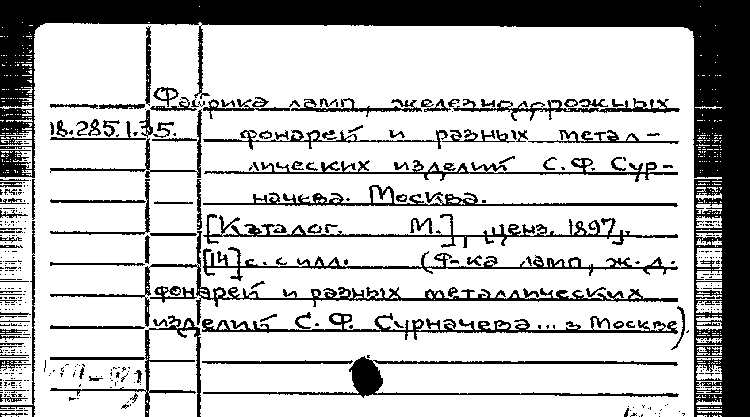 Фабрика ламп, железнодорожных
18.285.1.35. фонарей и разных метал-
лических изделий С.Ф. Сур-
начева. Москва.
[Каталог. М.], ценз. 1897.
[14] с. с илл. (Ф-ка ламп, ж.д.
фонарей и разных металлических
изделий С.Ф. Сурначева... в Москве)